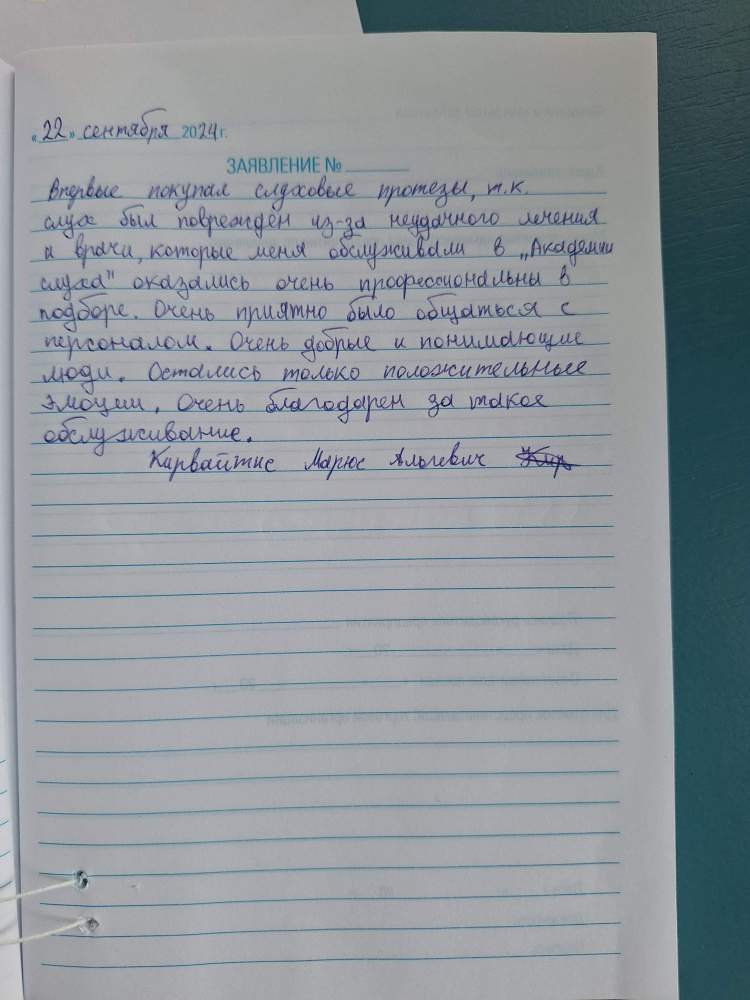 «22» сентября 2024 г.
ЗАЯВЛЕНИЕ №
Впервые покупал слуховые протезы, т.к.
слух был повреждён из-за неудачного лечения
и врачи, которые меня обслуживали в „Академии
слуха" оказались очень профессиональны в
подборе. Очень приятно было общаться с
персоналом. Очень добрые и понимающие
люди. Остались только положительные
эмоции. Очень благодарен за такое
обслуживание.
Кирвайтис Марюс Альгевич